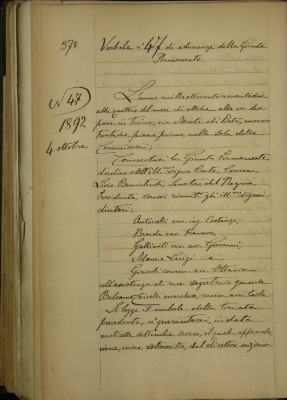 373
Verbale n° 47 di adunanza della Giunta
Permanente
N 47
1892
4 ottobre
L'anno mille ottocento novantadue
addì quattro del mese di ottobre, alle ore due
pom. in Torino, via Monte di Pietà, numero
piano primo, nella sala delle
Commissioni;
la Giunta Permanente,
Conte, Comm.
Luigi Senatore del Regno,
Presidente, sonosi riuniti gli ill.mi signori
direttori:
Antonelli cav. ing. Costanzo,
Braida cav. Francesco,
Gallinati cav. avv. Giovanni,
Luigi e
comm. avv. Ottavio
coll'assistenza di me segretario generale
Balsamo Crivelli marchese, comm. avv. Carlo
Si legge il verbale della tornata
precedente, in data
settembre scorso, il quale approvato,
viene, meco, sottoscritto, dal direttore anziano